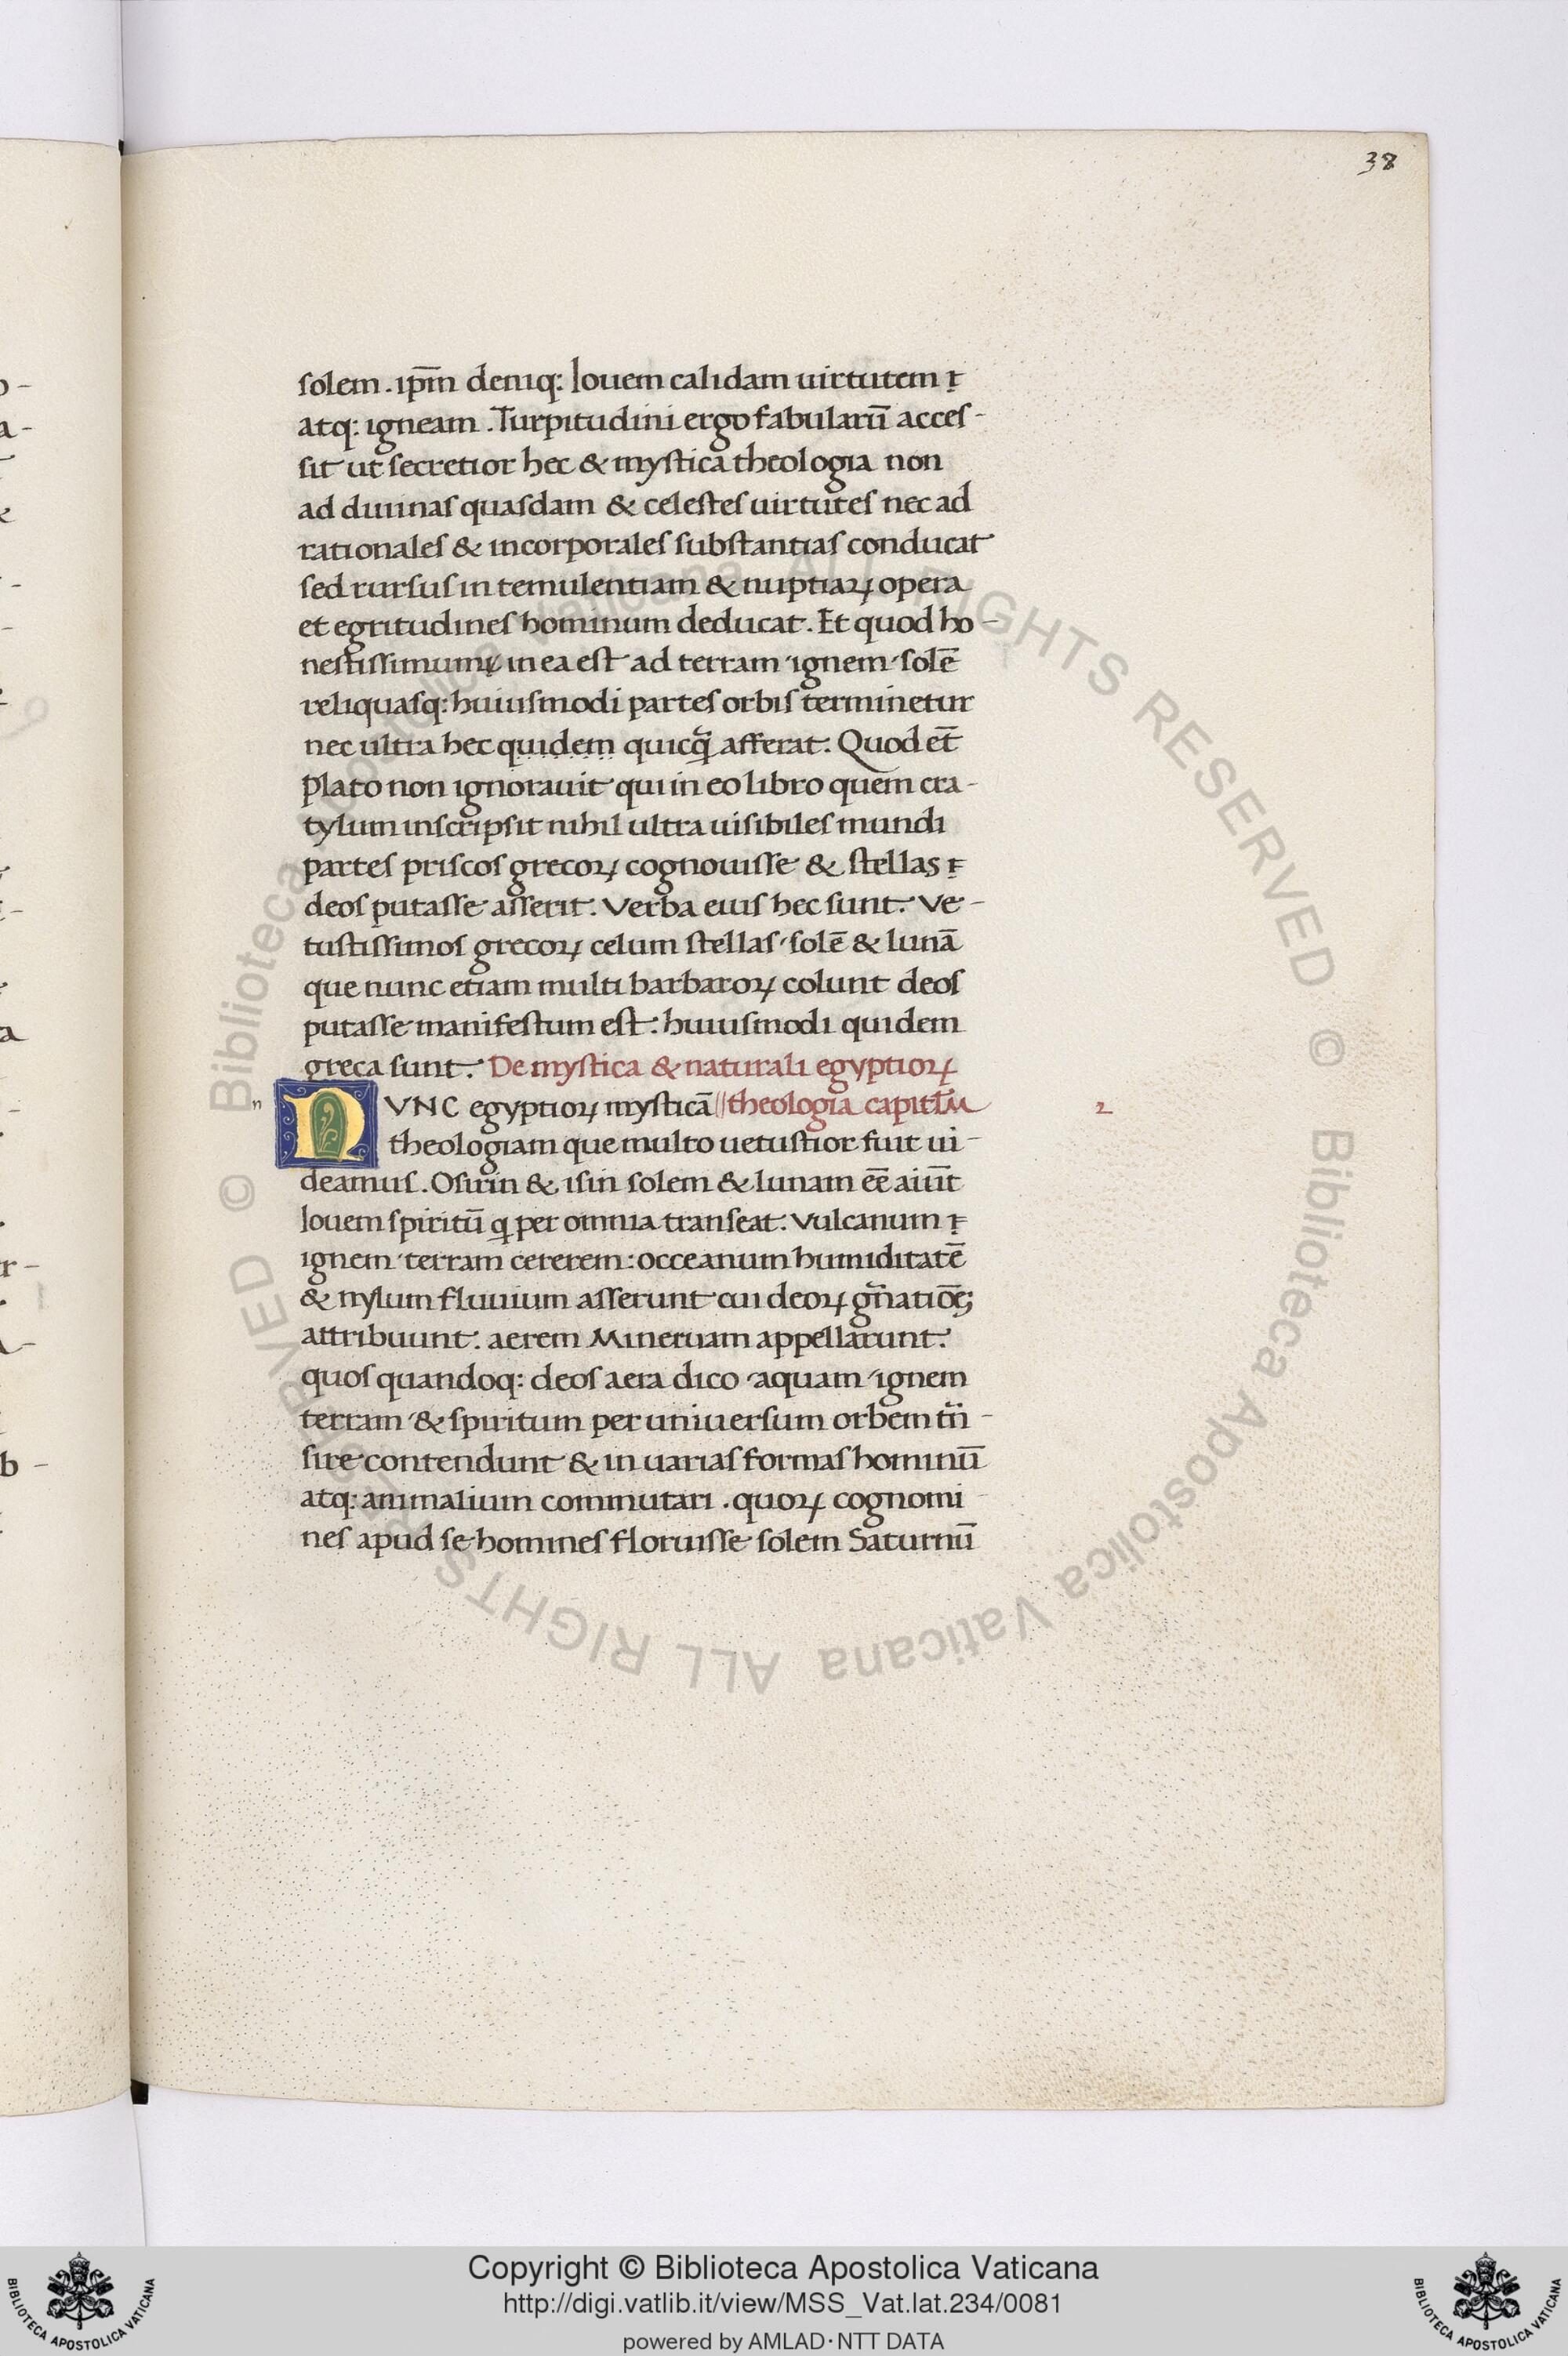 38
solem . ip̅m deniq: Iouem calidam uirtutem
atq: igneam . Turpitudini ergo fabularu̅ acces-
sit ut secretior hec & mystica theologia non
ad diuinas quasdam & celestes uirtutes nec ad
rationales & incorporales substantias conducat
sed rursus in temulentiam & nuptiaꝝ opera
et egritudines hominum deducat . Et quod ho-
nestissimum in ea est ad terram ignem sole̅
reliquasq: huiusmodi partes orbis terminetur
nec ultra hec quidem quicq̅ afferat . Quod et̅
Plato non ignorauit qui in eo libro quem cra-
tylum inscripsit nihil ultra uisibiles mundi
partes priscos grecoꝝ cognouisse & stellas
deos putasse asserit . Verba eius hec sunt . Ve-
tustissimos grecoꝝ celum stellas sole̅ & luna̅
que nunc etiam multi barbaroꝝ colunt deos
putasse manifestum est : huiusmodi quidem
greca sunt . De mystica & naturali egyptioꝝ
n NVNC egyptioꝝ mystica̅ || theologia capitl̅m 2
theologiam que multo uetustior fuit ui-
deamus . Osirin & isin solem & lunam ee̅ aiu̅t
Iouem spiritu̅ q per omnia transeat . Vulcanum
ignem terram cererem : occeanum humiditate̅
& nylum fluuium asserunt cui deoꝝ gn̅atio̅ꝫ
attribuunt . aerem Mineruam appellarunt .
quos quandoq: deos aera dico aquam ignem
terram & spiritum per uniuersum orbem tn̅-
sire contendunt & in uarias formas hominu̅
atq: animalium commutari . quoꝝ cognomi
nes apud se homines floruisse solem Saturnu̅
© Biblioteca Apostolica Vaticana ALL RIGHTS RESERVED © Biblioteca Apostolica Vaticana ALL RIGHTS RESERVED
Copyright © Biblioteca Apostolica Vaticana
http://digi.vatlib.it/view/MSS_Vat.lat.234/0081
powered by AMLAD·NTT DATA
BIBLIOTECA APOSTOLICA VATICANA
BIBLIOTECA APOSTOLICA VATICANA